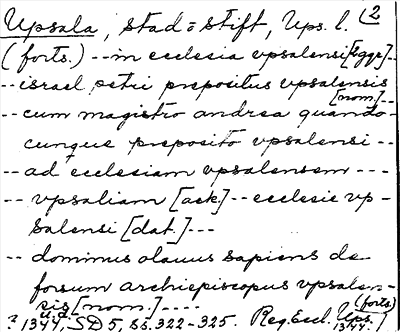 Upsala, stad o stift, Ups. l. (2
(forts.) -- in ecclesia vpsalensi [egge] --
-- israel petri prepositus vpsalensis [nom.] --
-- cum magistro andrea quando-
cunque preposito vpsalensi --
-- ad ecclesiam vpsalensem ---
-- vpsaliam [ack.] -- ecclesie vp-
salensi [dat.] ---
-- dominus olauus sapiens de-
forsum archiepiscopus vpsalen-
sis [nom.] ---- (forts.)
? 1344, u.d. SD 5, ss. 322-325. Reg. Eccl. Ups. 1344.